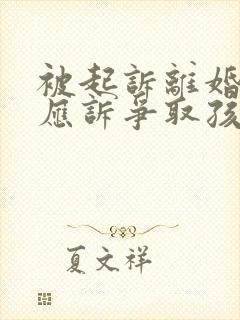 被起訴離婚
應訴爭取孩
夏文祥